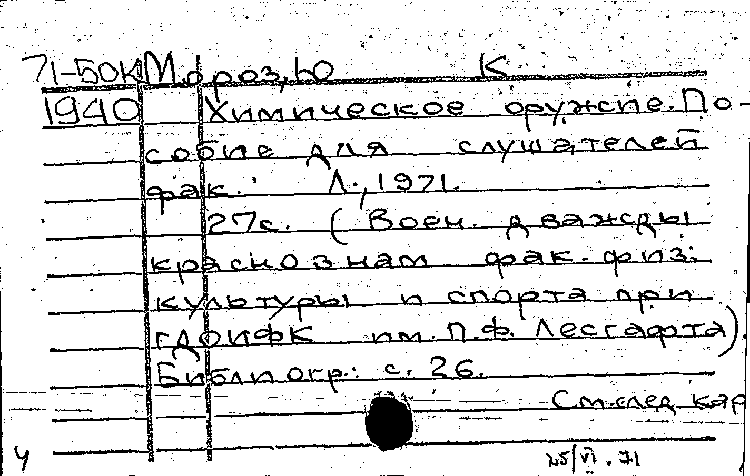 71-50К Мороз, Ю К
1940 Химическое оружие. По-
собие для слушателей
фак. Л., 1971.
27с. (Воен. дважды
краснознам фак. физ.
культуры и спорта при
ГДОИФК им. П.Ф. Лесгафта).
Библиогр.: с. 26.
См. след кар
4 25/VI. 71